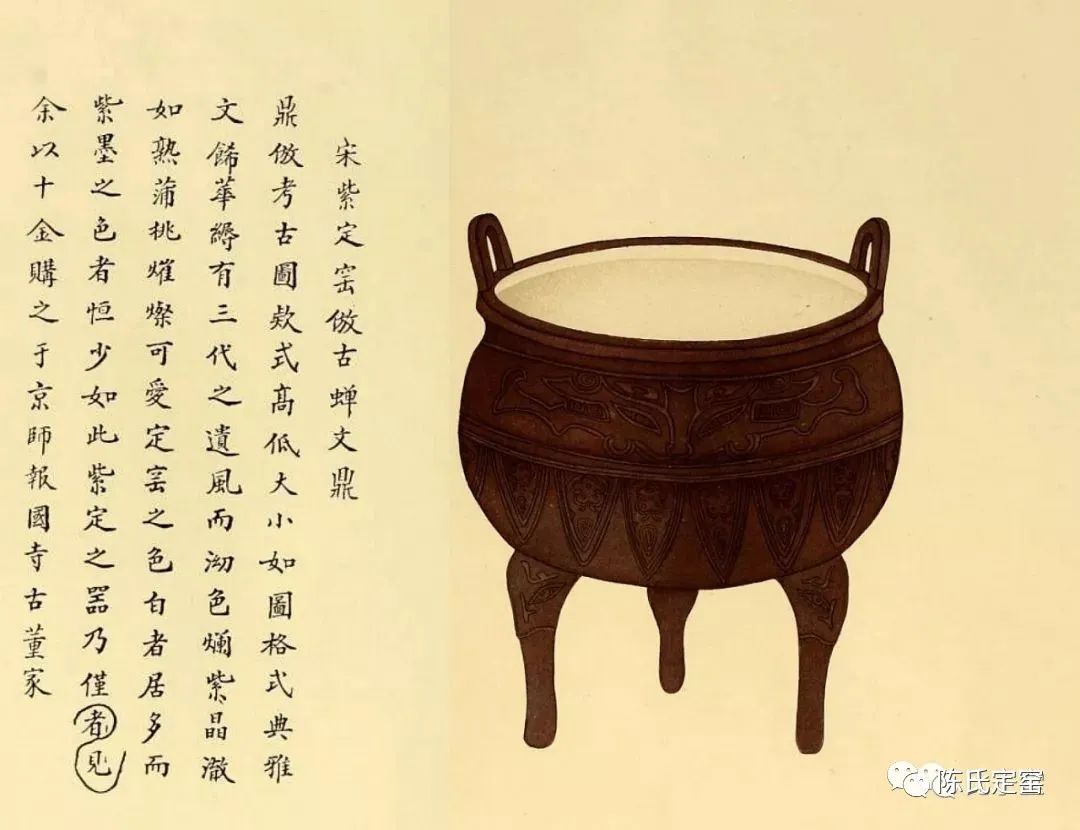 宋紫定窑倣古蝉文鼎
鼎倣考古圖欵式高低大小如圖格式典雅
文餙華縟有三代之遺風而泑色爛紫晶澈
如熟蒲桃熣燦可愛定窑之色白者居多而
紫墨之色者恒少如此紫定之器乃僅者見
余以十金購之于京師報國寺古董家
陈氏定窑